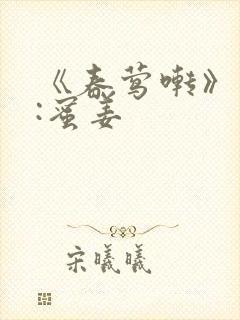 《春莺啭》
:蜜姜
宋曦曦